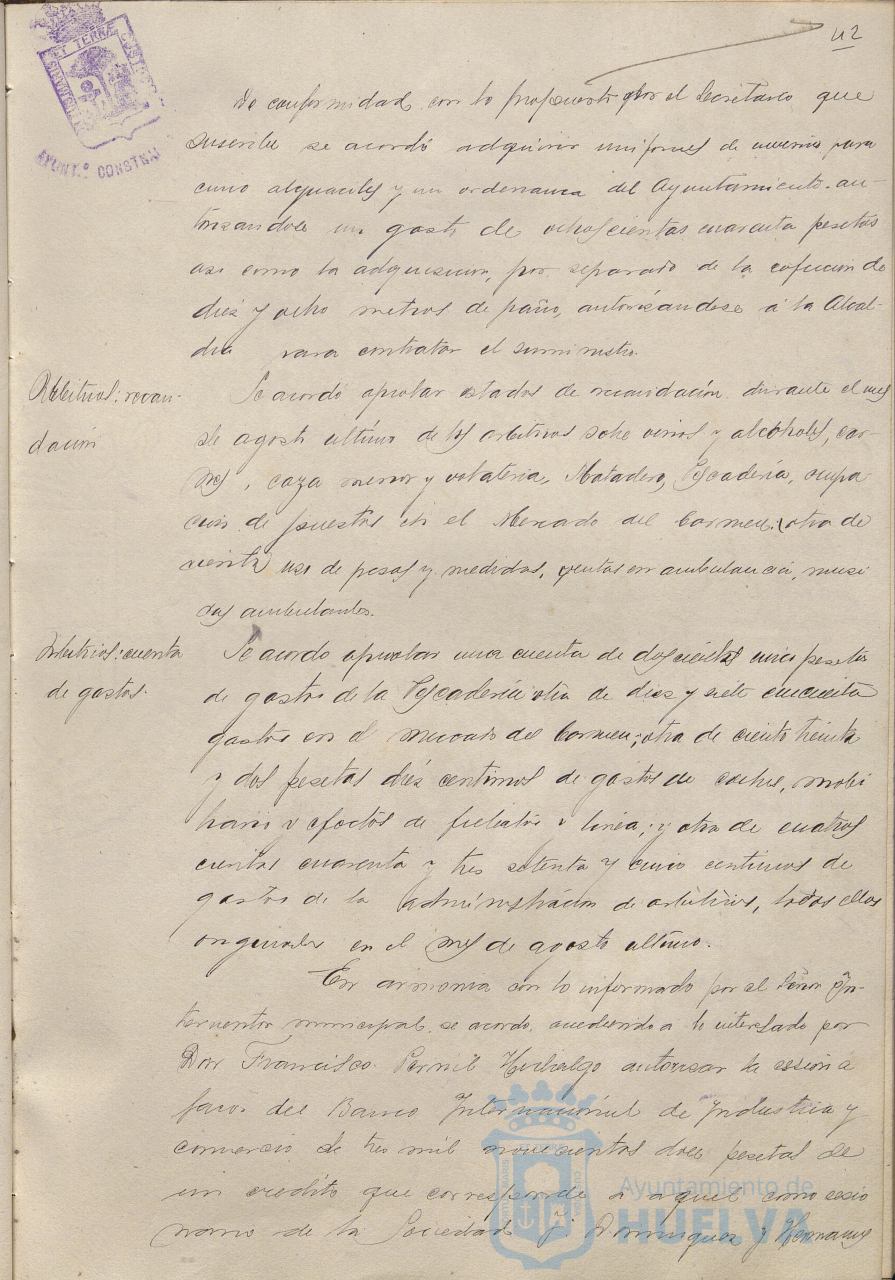 42
PORTUS MARIS ET TERRÆ CUSTODIA
AYUNT.º CONSTNAL
De conformidad con lo propuesto por el Secretario que
suscribe se acordó adquirir uniformes de invierno para
cinco alguaciles y un ordenanza del Ayuntamiento, au-
torizandose un gasto de ochocientas cuarenta pesetas
asi como la adquisicion, por separado de la cofeccion de
diez y ocho metros de paño, autorizandose á la Alcal-
dia para contratar el suministro.
Arbitrios: recau-
dación
Se acordó aprobar estados de recaudación durante el mes
de agosto ultimo de los arbitrios sobre vinos y alcoholes, car-
nes, caza menor y volateria, Matadero, Pescadería, ocupa
cion de puestos en el Mercado del Carmen; otra de
renta uso de pesas y medidas, ventas en ambulancia, musi
cos ambulantes.
Arbitrios: cuenta
de gastos.
Se acordo aprobar una cuenta de doscientas cinco pesetas
de gastos de la Pescadería otra de diez y siete cincuenta
gastos en el mercado del Carmen; otra de ciento treinta
y dos pesetas diez centimos de gastos de coches, mobi
liario y efectos de fielatos y linea; y otra de cuatros
cientas cuarenta y tres setenta y cinco centimos de
gastos de la administracion de arbitrios, todos ellos
originales en el mes de agosto ultimo.
En armonia con lo informado por el Señor In-
terventor municipal se acordo, accediendo a lo interesado por
Don Francisco Pernil Hidalgo autorizar la cesion a
favor del Banco Internacional de Industria y
comercio de tres mil novecientas doce pesetas de
un credito que corresponde a aquel como cesio
nario de la Sociedad J. Dominguez y Hermanos
Ayuntamiento de
HUELVA